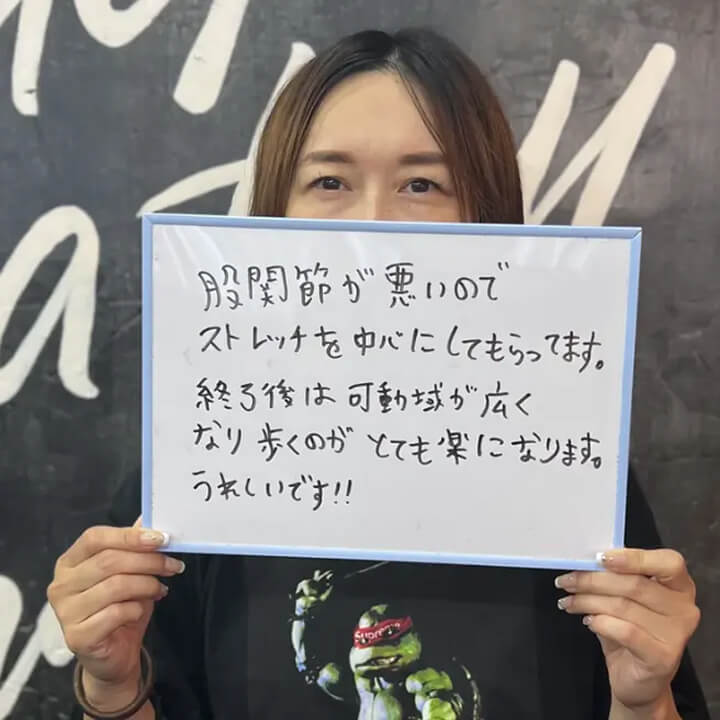 股関節が悪いので
ストレッチを中心にしてもらってます。
終了後は可動域が広く
なり歩くのがとても楽になります。
うれしいです!!
Supreme